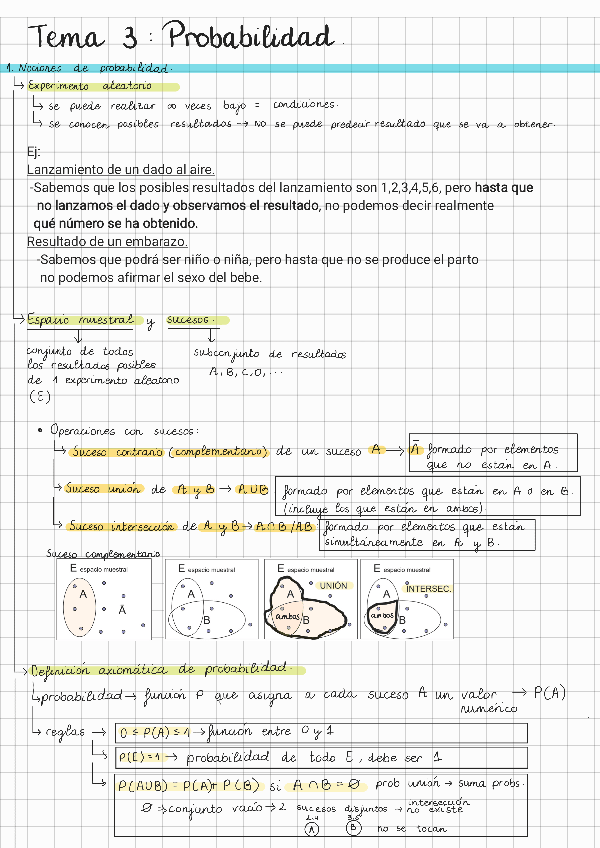 Tema 3: Probabilidad.
1. Nociones de probabilidad.
↳ Experimento aleatorio
↳ se puede realizar ∞ veces bajo = condiciones.
↳ se conocen posibles resultados → No se puede predecir resultado que se va a obtener.
Ej:
Lanzamiento de un dado al aire.
-Sabemos que los posibles resultados del lanzamiento son 1,2,3,4,5,6, pero hasta que
no lanzamos el dado y observamos el resultado, no podemos decir realmente
qué número se ha obtenido.
Resultado de un embarazo.
-Sabemos que podrá ser niño o niña, pero hasta que no se produce el parto
no podemos afirmar el sexo del bebe.
↳ Espacio muestral y sucesos.
conjunto de todos
los resultados posibles
de 1 experimento aleatorio
(E)
subconjunto de resultados
A, B, C, D, ...
• Operaciones con sucesos:
↳ Suceso contrario (complementario) de un suceso A → Ā formado por elementos
que no estan en A.
↳ Suceso unión de A y B → A∪B formado por elementos que están en A o en B.
(incluye los que están en ambos)
↳ Suceso intersección de A y B → A∩B/AB formado por elementos que están
simultáneamente en A y B.
Suceso complementario
E espacio muestral
A
Ā
E espacio muestral
A
B
E espacio muestral
UNIÓN
A
ambos
B
E espacio muestral
INTERSEC.
A
ambos
B
↳ Definición axiomática de probabilidad.
↳ probabilidad → función P que asigna a cada suceso A un valor → P(A)
numérico
↳ reglas → 0 ≤ P(A) ≤ 1 → función entre 0 y 1
↳ P(E) = 1 → probabilidad de todo E, debe ser 1
↳ P(A∪B) = P(A) + P(B) si A∩B = ∅ prob unión → suma probs.
∅ → conjunto vacío → 2 sucesos disjuntos → intersección
no existe
A B no se tocan